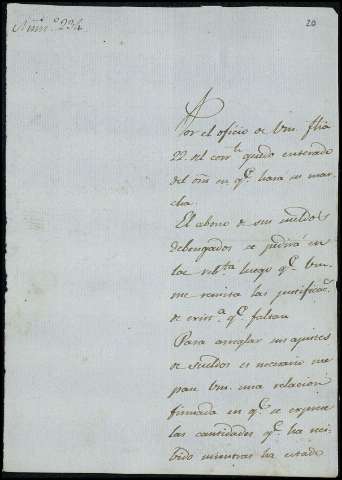 Núm.º 234
20
Por el oficio de Vm. fha
22 del corr.te quedo enterado
del dia en q.e hara su mar-
cha.
El abono de sus sueldos
debengados se pedirá en
luego q.e Vm.
me remita las justificac.s
de exist.a q.e faltan
Para arreglar sus ajustes
de sueldos es necesario me
pase Vm. una relacion
firmada en q.e se exprese
las cantidades q.e ha reci-
bido mientras ha estado